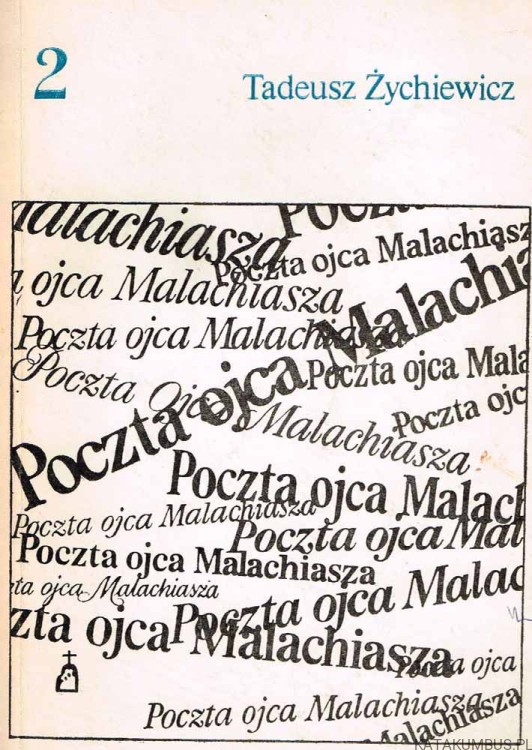 2
Tadeusz Żychiewicz
Malachiasza
Poczta ojca Malachiasz
ojca Malachiasza
Poczta ojca Malachiasza
Poczta ojca Malachia
Poczta ojca Mala
Poczta Ojca Malachiasza
Poczta ojc
Poczta ojca Malach
Poczta ojca Malachiasza
Poczta ojca Mal
Poczta ojca Malachiasza
ta ojca Malachiasza
Poczta ojca Malac
zta ojca Malachiasza
Poczta ojca
Poczta ojca Malachiasza
Malachiasza
KATAKUMBUS.PL